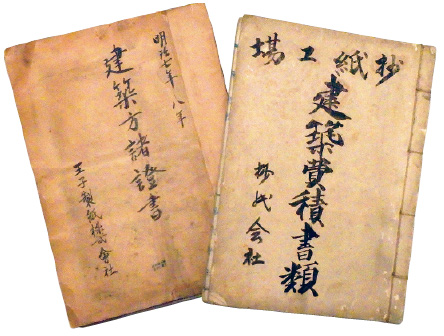 明治七年八年
建築方諸證書
王子製紙株式會社
抄紙工場
建築費積書類
抄紙会社